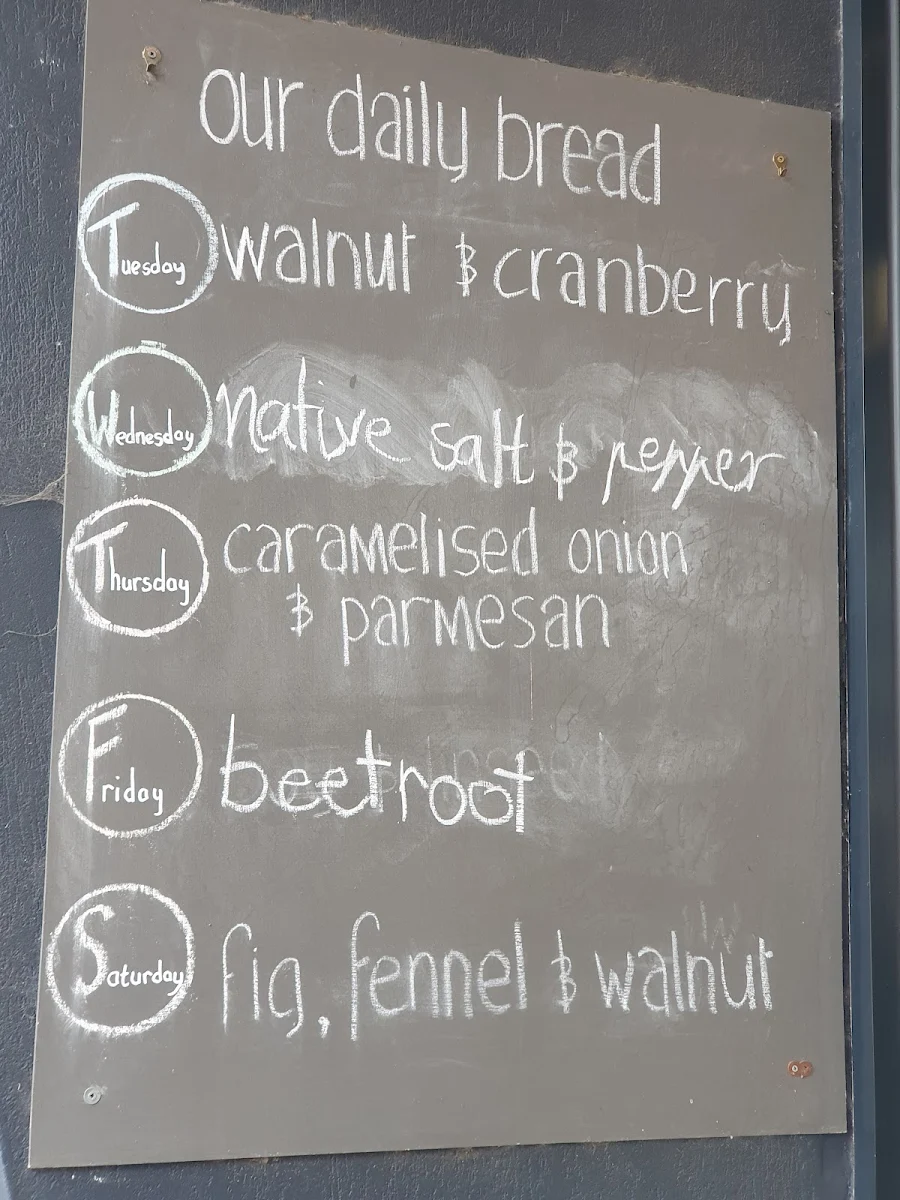 our daily bread
Tuesday walnut & cranberry
Wednesday native salt & pepper
Thursday caramelised onion
& parmesan
Friday beetroot
Saturday fig, fennel & walnut